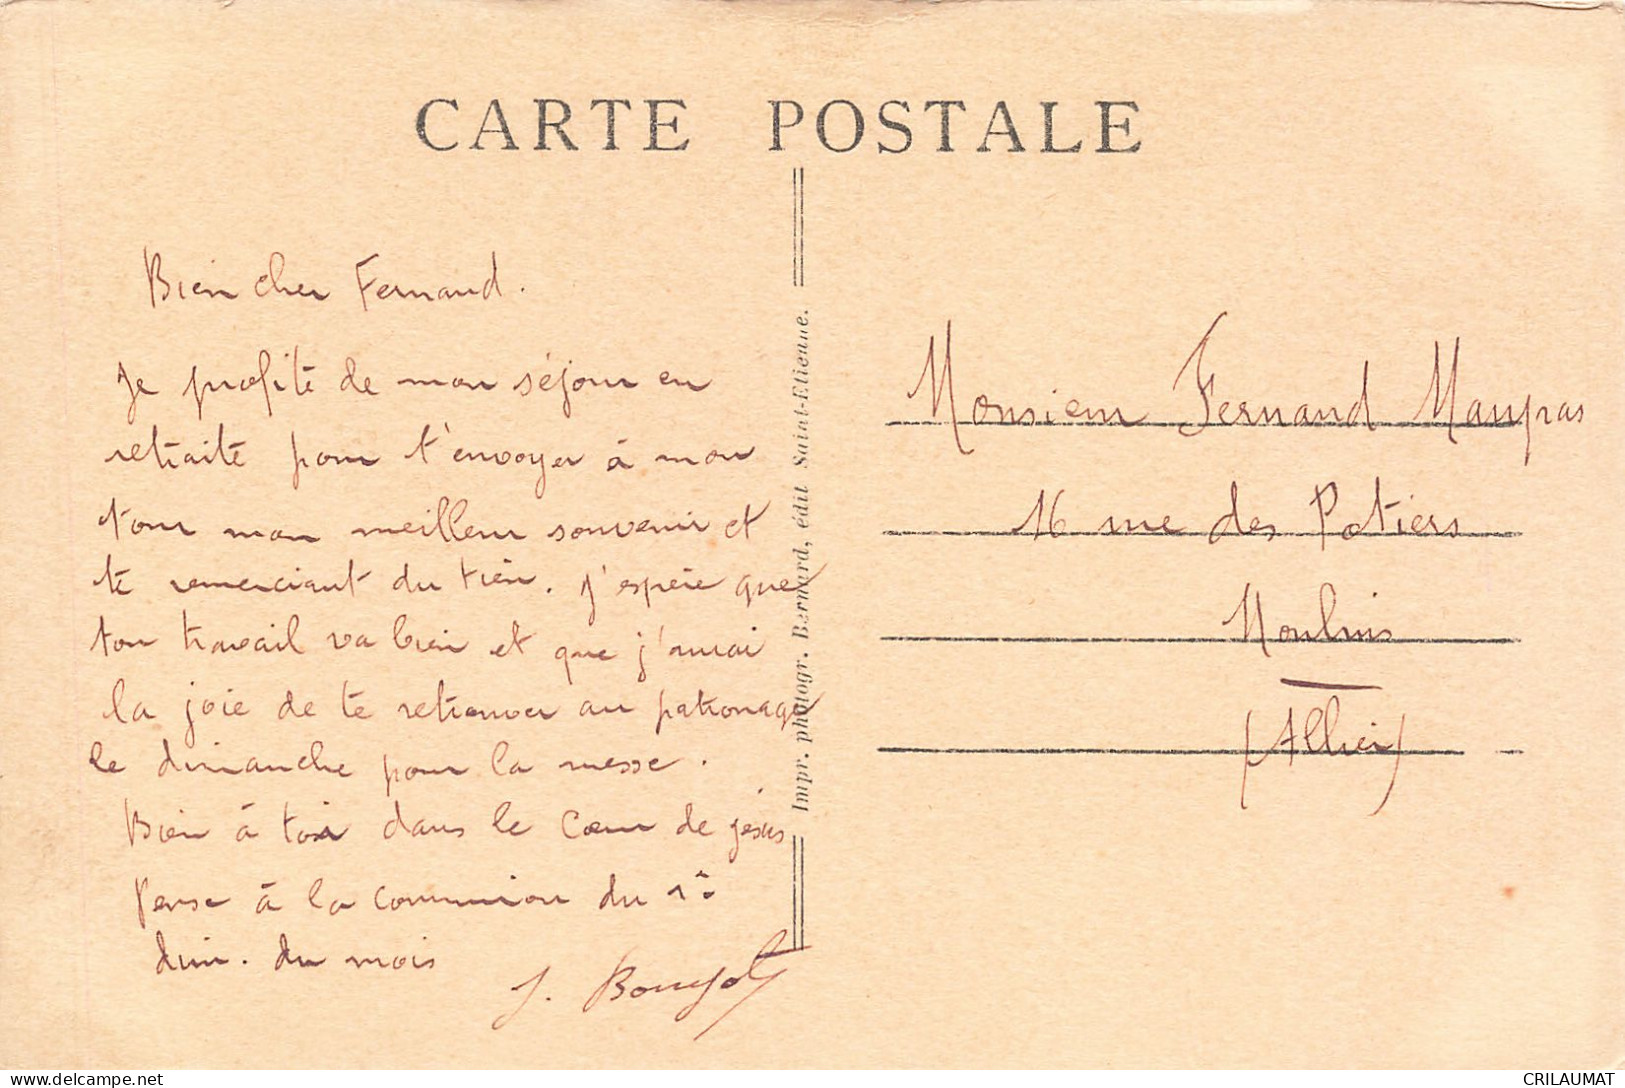 CARTE POSTALE
Bien cher Fernand.
Je profite de mon séjour en
retraite pour t'envoyer à mon
tour mon meilleur souvenir et
te remerciant du tien. J'espère que
ton travail va bien et que j'aurai
la joie de te retrouver au patronage
le dimanche pour la messe.
Bien à toi dans le Cœur de jésus
Pense à la communion du 1er
dim. du mois
J.
Impr. photogr. Bernard, édit Saint-Etienne.
Monsieur Fernand Maupas
16 rue des Potiers
Moulins
(Allier)
https://www.delcampe.net
CRILAUMAT